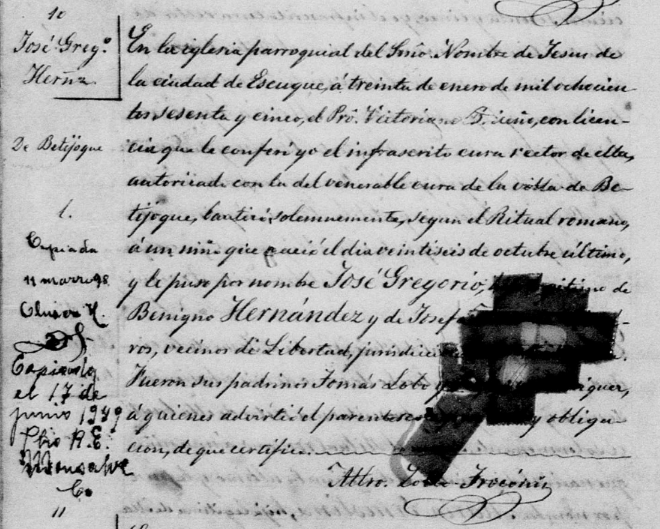 10
José Greg.o
Hernz
De Betijoque
1.
Copiada
11 marzo 98.
Copiada
el 17 de
junio 1949
Pbro A. E.
Monsalve
11
En la iglesia parroquial del Smo. Nombre de Jesus de
la ciudad de Escuque, á treinta de enero de mil ochocien-
tos sesenta y cinco, el Pbro. Victoriano Briceño, con licen-
cia que le conferí yo el infrascrito cura rector de ella,
autorizado con la del venerable cura de la villa de Be-
tijoque, bautizó solemnemente, segun el Ritual romano,
á un niño que nació el dia veintiseis de octubre último,
y le puso por nombre José Gregorio,
Benigno Hernández y de Josef
ros, vecinos de Libertad,
Fueron sus padrinos Tomás Lobo y
á quienes advirtió el parentesco y obliga-
cion, de que certifico.